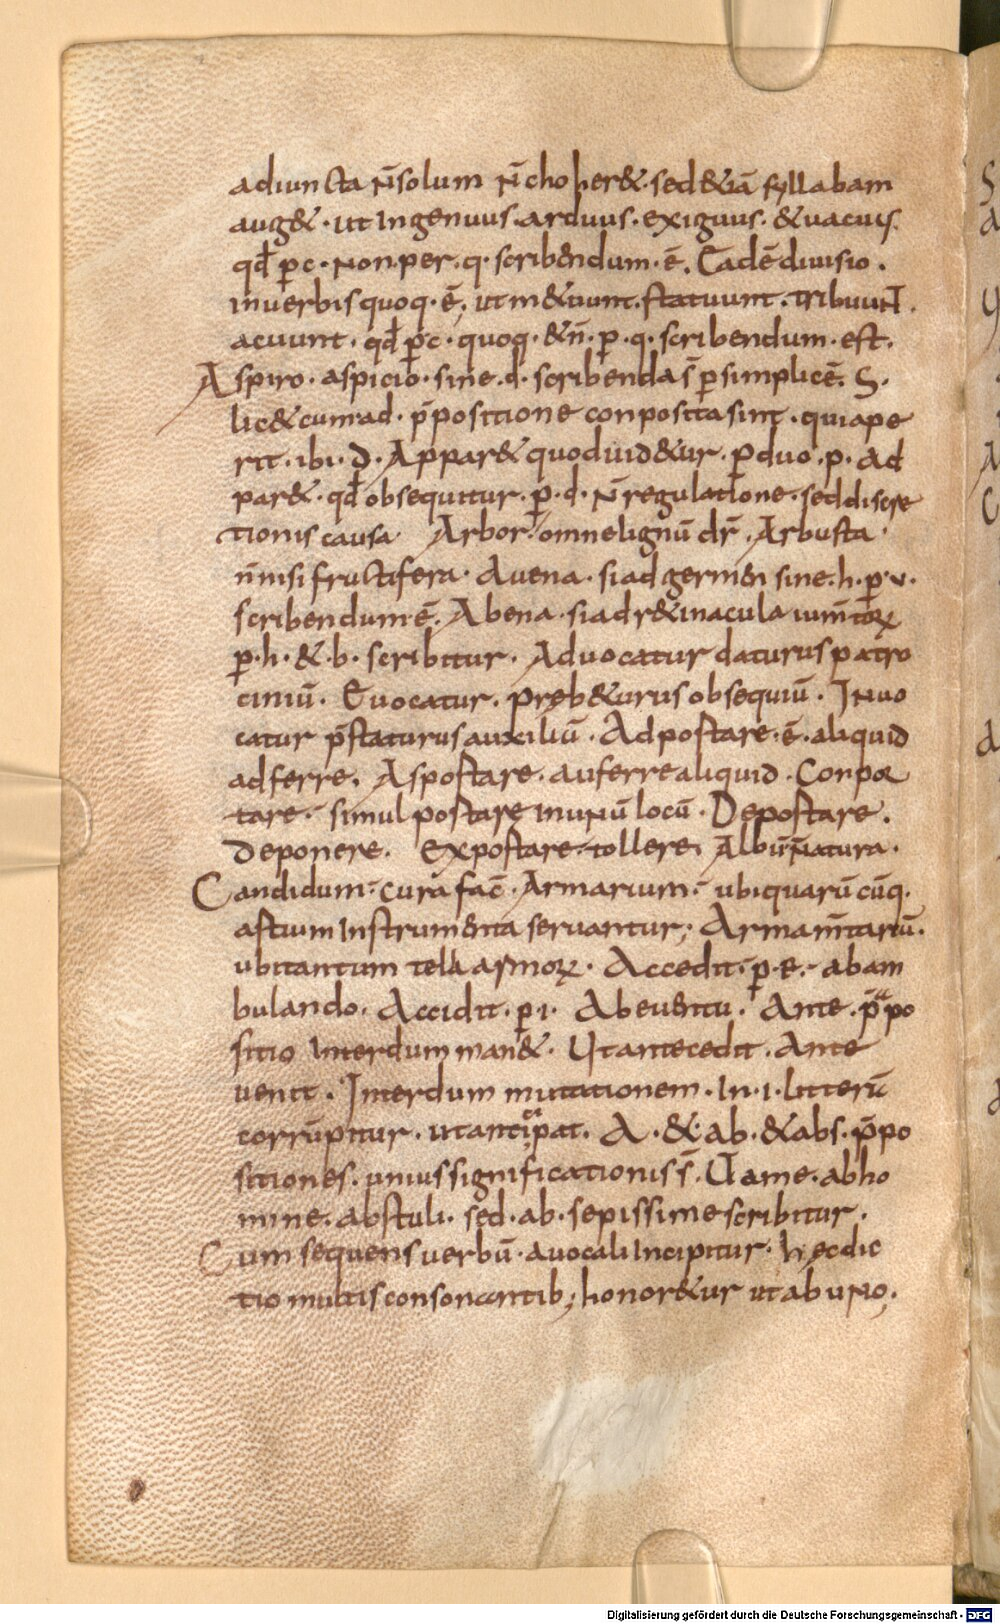 adiuncta n̄ solum n̄ choher&. sed &iā syllabam
aug&. ut Ingenuus. arduus. exiguus. & uacuus.
qđ p̱c. Non per. q. scribendum. ē. Eadē diuisio.
in uerbis quoq. ē, ut m&uunt. statuunt. tribuuNT.
acuunt. qđ p̱c. quoq. & n̄. p̱. q. scribendum. est.
Aspiro. aspicio. sine. d. scribenda s̄ p̱ simplicē. S.
lic& cum ad. p̄positione conposita sint. quia pe
rit. ibi. d. Appar& quod uid&ur. p̱ duo. p. Ad
par&. qđ obsequitur. p̱. d. n̄ regulatione. sed discre
tionis causa. Arbor. omne lignū dr̄. Arbusta.
n̄ nisi fructifera. Auena. si ad germen sine. h. p̱. u.
scribendum ē. Abena. si ad r&inacula iumtoꝝ
p̱. h. &. b. scribitur. Aduocatur daturus patro
ciniū. Euocatur. preb&urus obsequiū. INuo
catur p̄staturus auxiliū. Adportare. ē. aliquid
adferre. Asportare. auferre aliquid. Conpor
tare. simul portare in uNū locū. Deportare.
Deponere. Exportare. tollere. Albū natura.
Candidum. cura fac̄. Armarium. ubi quarūcūq.
artium Instrumenta seruantur; Armam̄tariū.
ubi tantum tela armoꝝ. Accedit. p̱. e. abam
bulando. Accidit. p̱ i. Ab euentu. Ante. p̄po
sitio Interdum man&. Ut antecedit. Ante
uenit. Interdum mutationem. In. i. litterā
corrūpitur. ut anticipat. A. &. ab. & abs. p̄po
sitiones. unius significationis s̄. Ut a me. ab ho
mine. abstuli. sed. ab. sepissime scribitur.
Cum sequens uerbū. a uocali Incipitur. hec dic
tio multis consonantib; honor&ur ut ab uNo,
Digitalisierung gefördert durch die Deutsche Forschungsgemeinschaft - DFG